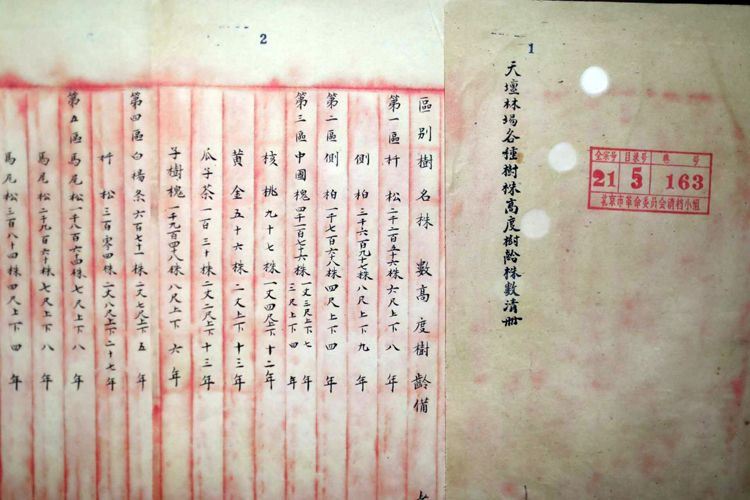 1
天壇林場各種樹株高度樹齡株數清冊
全宗号 目录号 卷号
21 5 163
北京市革命委员会清档小组
2
區別樹名株數高度樹齡備
第一區杆松二千二百五十六株六尺上下八年
側柏三千六百九十七株八尺上下九年
第二區側柏一千七百六十八株四尺上下四年
第三區中國槐四千一百七十六株一丈三尺上下七年
三尺上下四年
核桃九十七株一丈四尺上下十二年
黃金五十六株二丈上下十三年
瓜子茶一百三十株二丈二尺上下十三年
子樹槐一千九百四十八株八尺上下六年
第四區白楊条六百七十一株二丈七尺上下五年
杆松三百零四株二丈八尺上下二十七年
第五區馬尾松一千八百六十四株七尺上下八年
馬尾松二千九百六十株七尺上下八年
馬尾松三百八十四株四尺上下四年